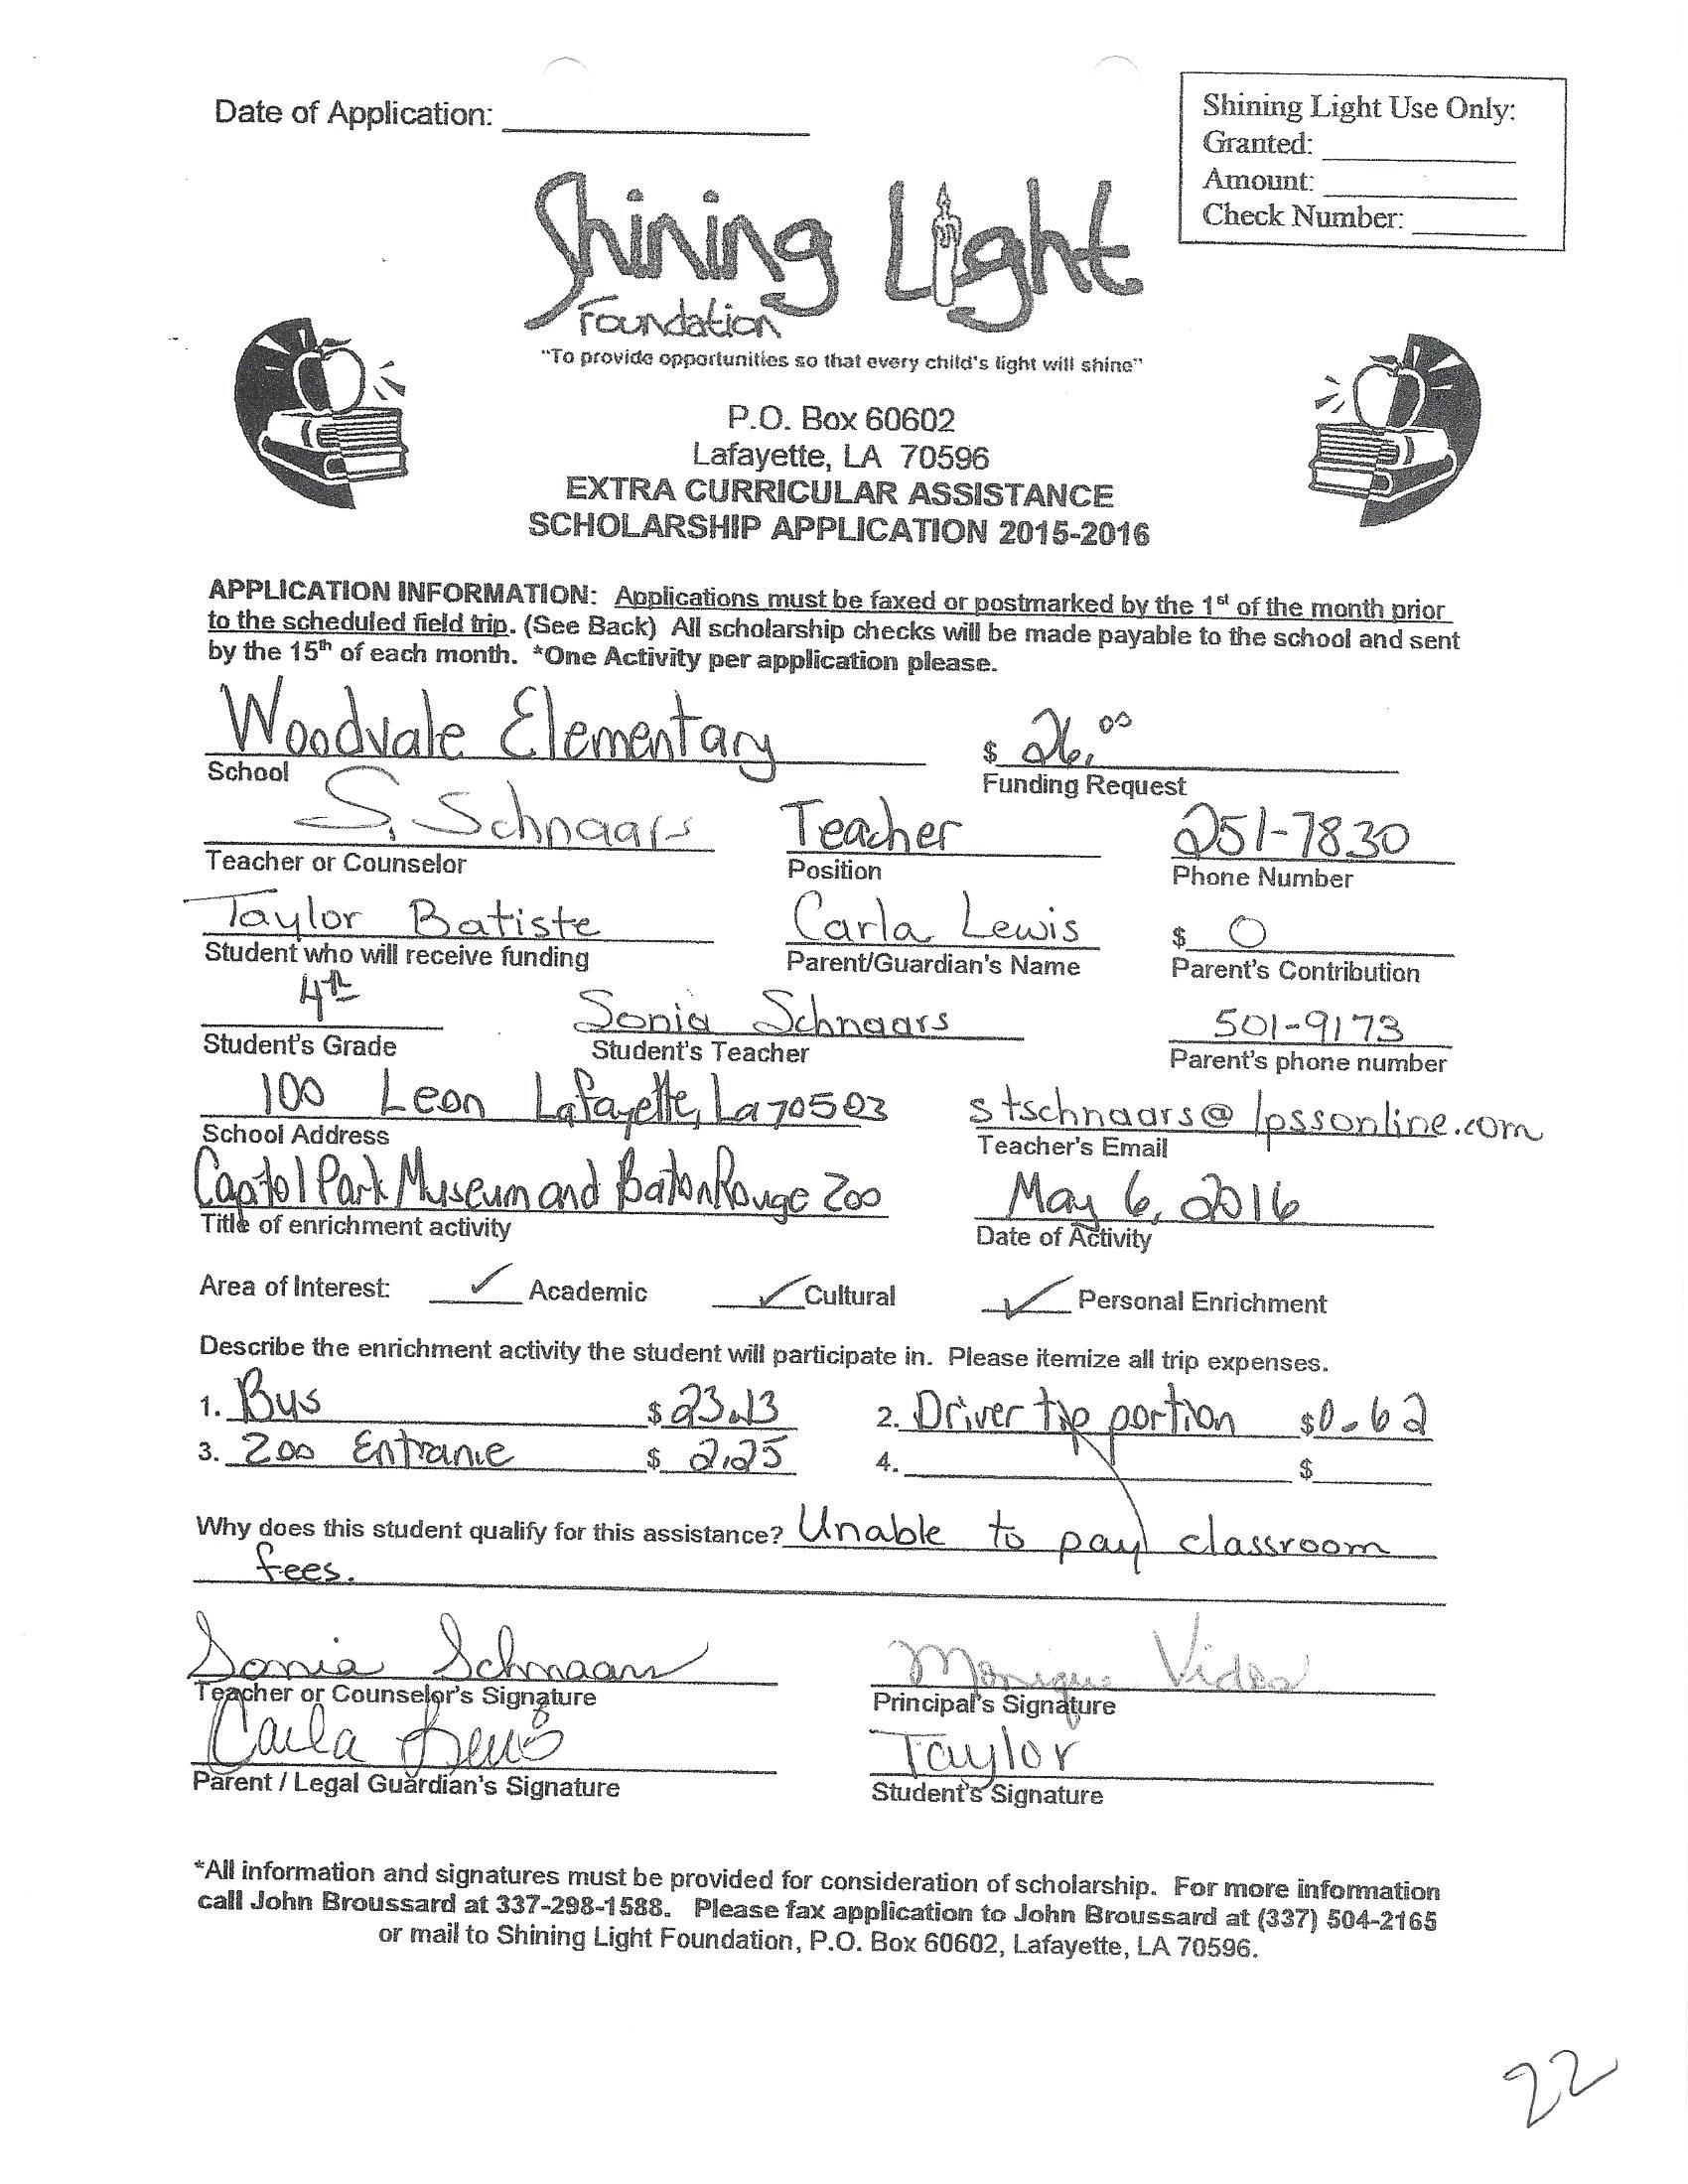 Date of Application:
Shining Light Use Only:
Granted:
Amount:
Check Number:
Shining Light
Foundation
"To provide opportunities so that every child's light will shine"
P.O. Box 60602
Lafayette, LA 70596
EXTRA CURRICULAR ASSISTANCE
SCHOLARSHIP APPLICATION 2015-2016
APPLICATION INFORMATION: Applications must be faxed or postmarked by the 1st of the month prior
to the scheduled field trip. (See Back) All scholarship checks will be made payable to the school and sent
by the 15th of each month. *One Activity per application please.
Woodvale Elementary $ 26.00
School Funding Request
S. Schnaars Teacher 251-7830
Teacher or Counselor Position Phone Number
Taylor Batiste Carla Lewis $ 0
Student who will receive funding Parent/Guardian's Name Parent's Contribution
4th Sonia Schnaars 501-9173
Student's Grade Student's Teacher Parent's phone number
100 Leon Lafayette, La 70503 stschnaars@lpssonline.com
School Address Teacher's Email
Capitol Park Museum and Baton Rouge Zoo May 6, 2016
Title of enrichment activity Date of Activity
Area of Interest: ✓ Academic ✓ Cultural ✓ Personal Enrichment
Describe the enrichment activity the student will participate in. Please itemize all trip expenses.
1. Bus $ 23.13 2. Driver tip portion $0.62
3. Zoo Entrance $ 2.25 4. $
Why does this student qualify for this assistance? Unable to pay classroom
fees.
Sonia Schnaars Monique Vidos
Teacher or Counselor's Signature Principal's Signature
Carla Lewis Taylor
Parent / Legal Guardian's Signature Student's Signature
*All information and signatures must be provided for consideration of scholarship. For more information
call John Broussard at 337-298-1588. Please fax application to John Broussard at (337) 504-2165
or mail to Shining Light Foundation, P.O. Box 60602, Lafayette, LA 70596.
22